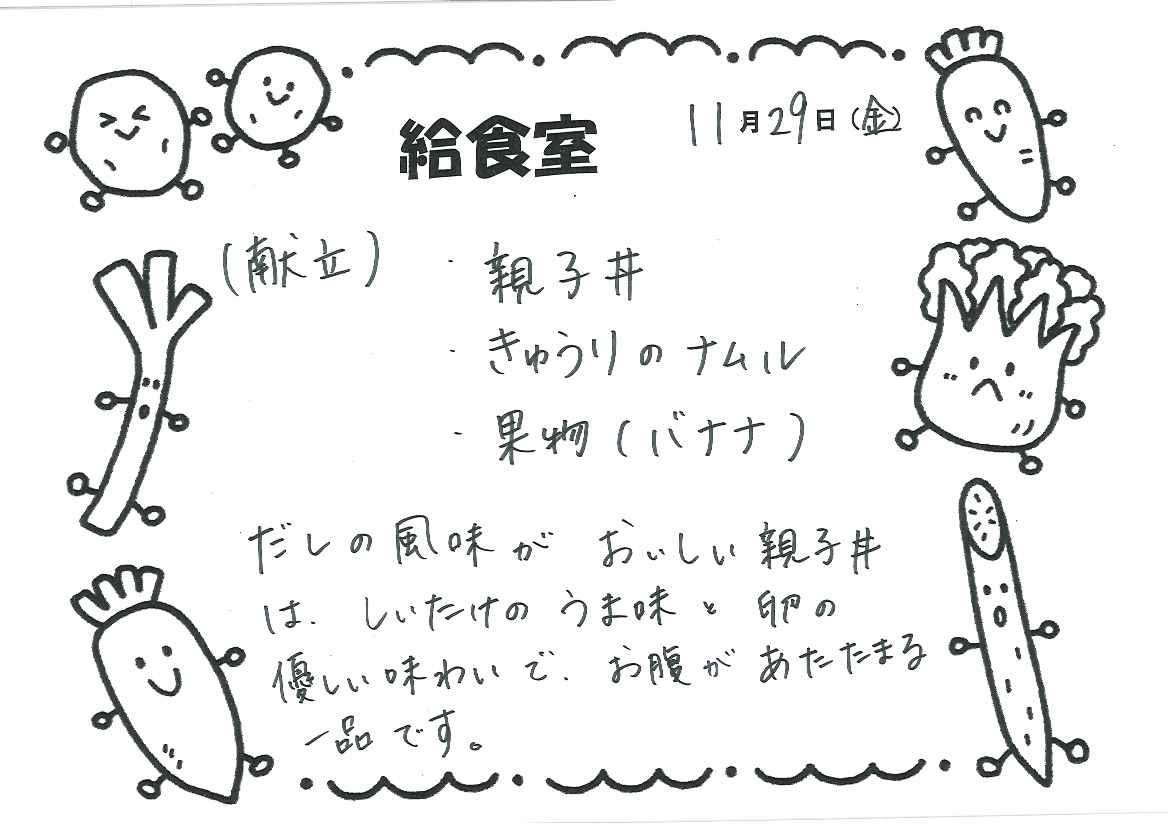 給食室
11月29日(金)
(献立)
・親子丼
・きゅうりのナムル
・果物(バナナ)
だしの風味が おいしい親子丼
は、しいたけの うま味と 卵の
優しい味わいで、お腹があたたまる
一品です。